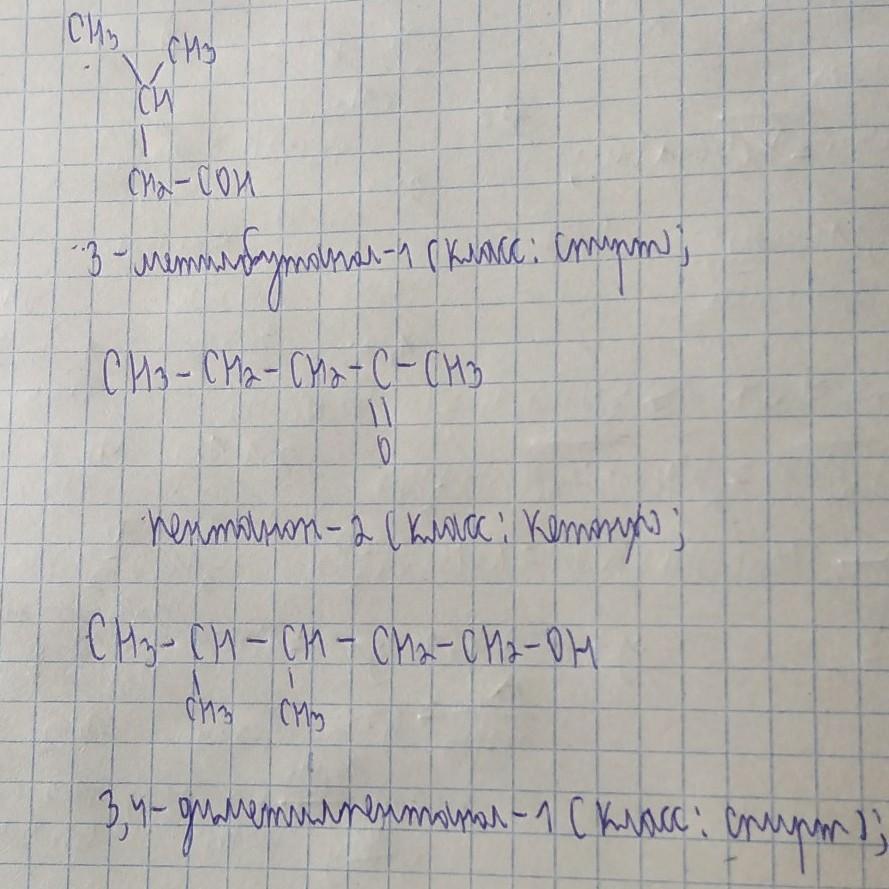 CH3
CH3
CH
CH2-COH
3-метилбутанал-1 (класс: спирт);
CH3-CH2-CH2-C-CH3
O
пентанон-2 (класс: кетоны);
CH3-CH-CH-CH2-CH2-OH
CH3 CH3
3,4-диметилпентанол-1 (класс: спирт);